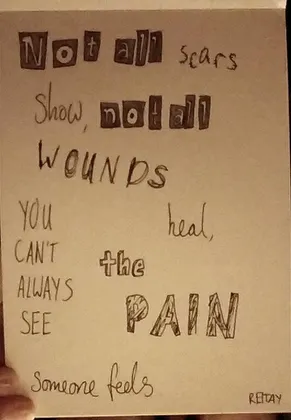 Not all scars
Show, not all
WOUNDS
heal,
YOU
CAN'T
ALWAYS
SEE
the
PAIN
someone feels